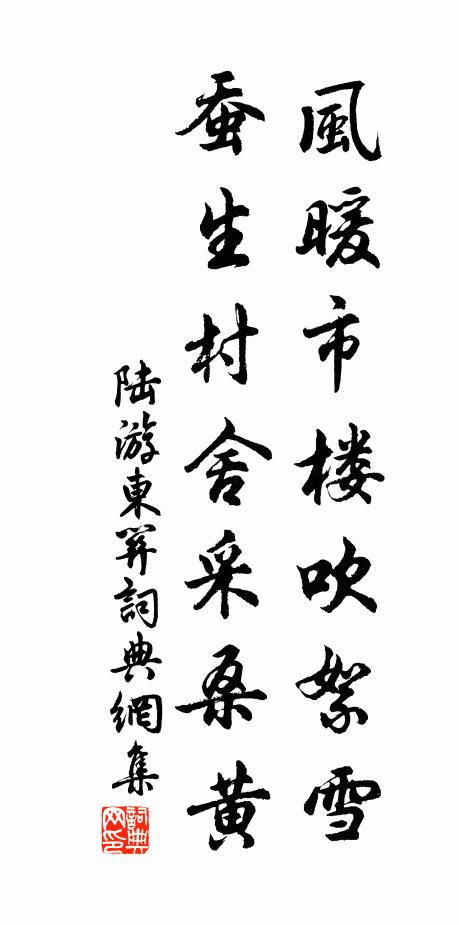 風暖市楼吹絮雪
蚕生村舍采桑黄
陆游東関詞典網集
詞典网印